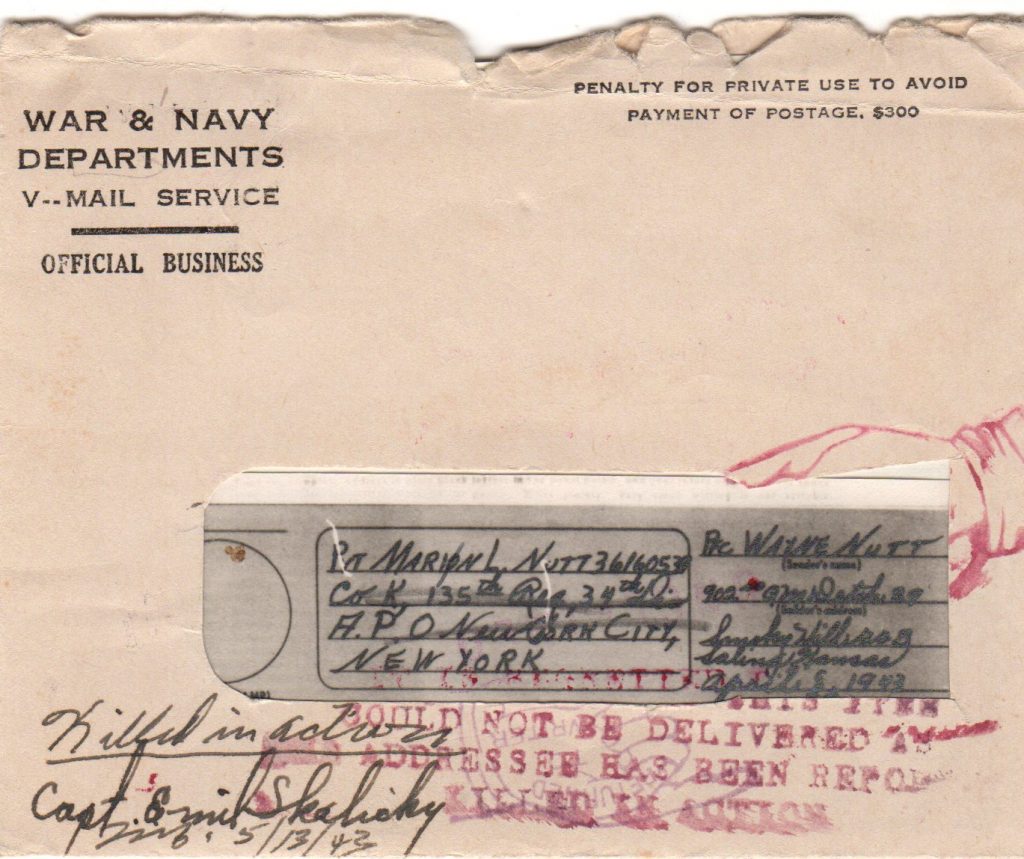 PENALTY FOR PRIVATE USE TO AVOID
PAYMENT OF POSTAGE, $300
WAR & NAVY
DEPARTMENTS
V--MAIL SERVICE
OFFICIAL BUSINESS
Pvt MARION L. NUTT 36160539
Co. K, 135th Reg, 34th D.
A.P.O NEW YORK CITY,
NEW YORK
Pfc WAYNE NUTT
(Sender's name)
902
(Sender's address)
Smoky Hill
Salina Kansas
April 8, 1943
COULD NOT BE DELIVERED AS
ADDRESSEE HAS BEEN REPOR
KILLED IN ACTION
Killed in action
Capt. Emil Skalicky
5/13/43